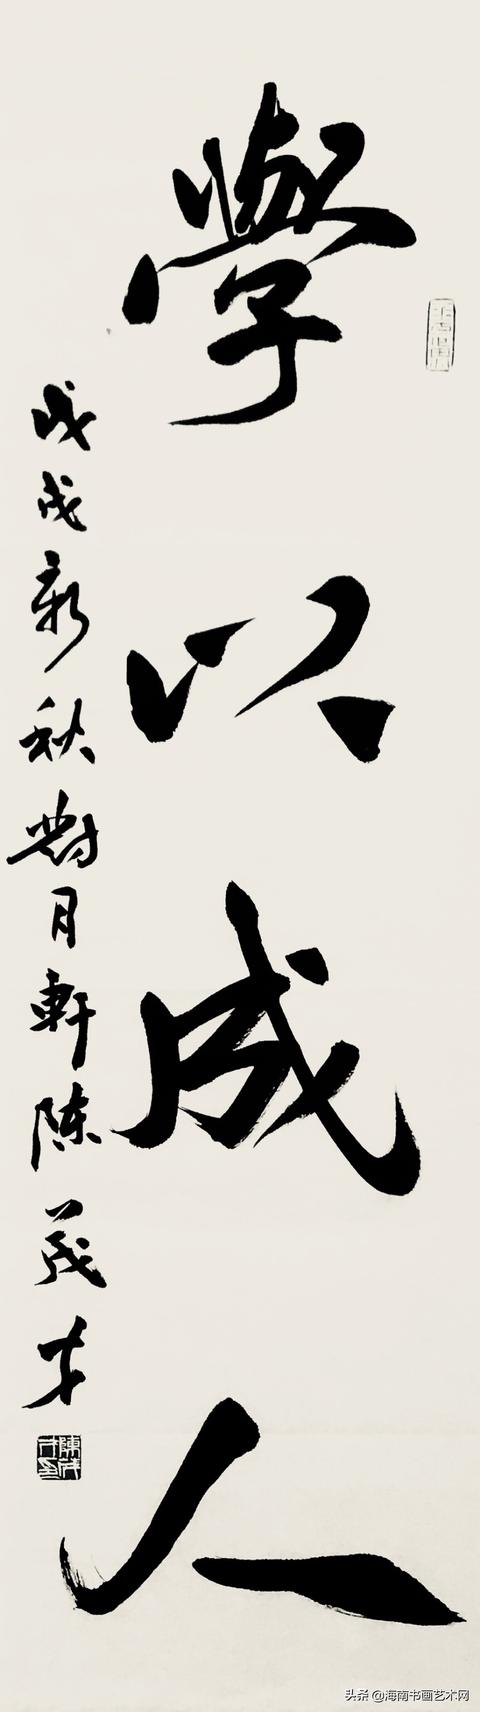 學以成人
戊戌新秋對月軒陈茂才
陳茂才印
头条 @海南书画艺术网